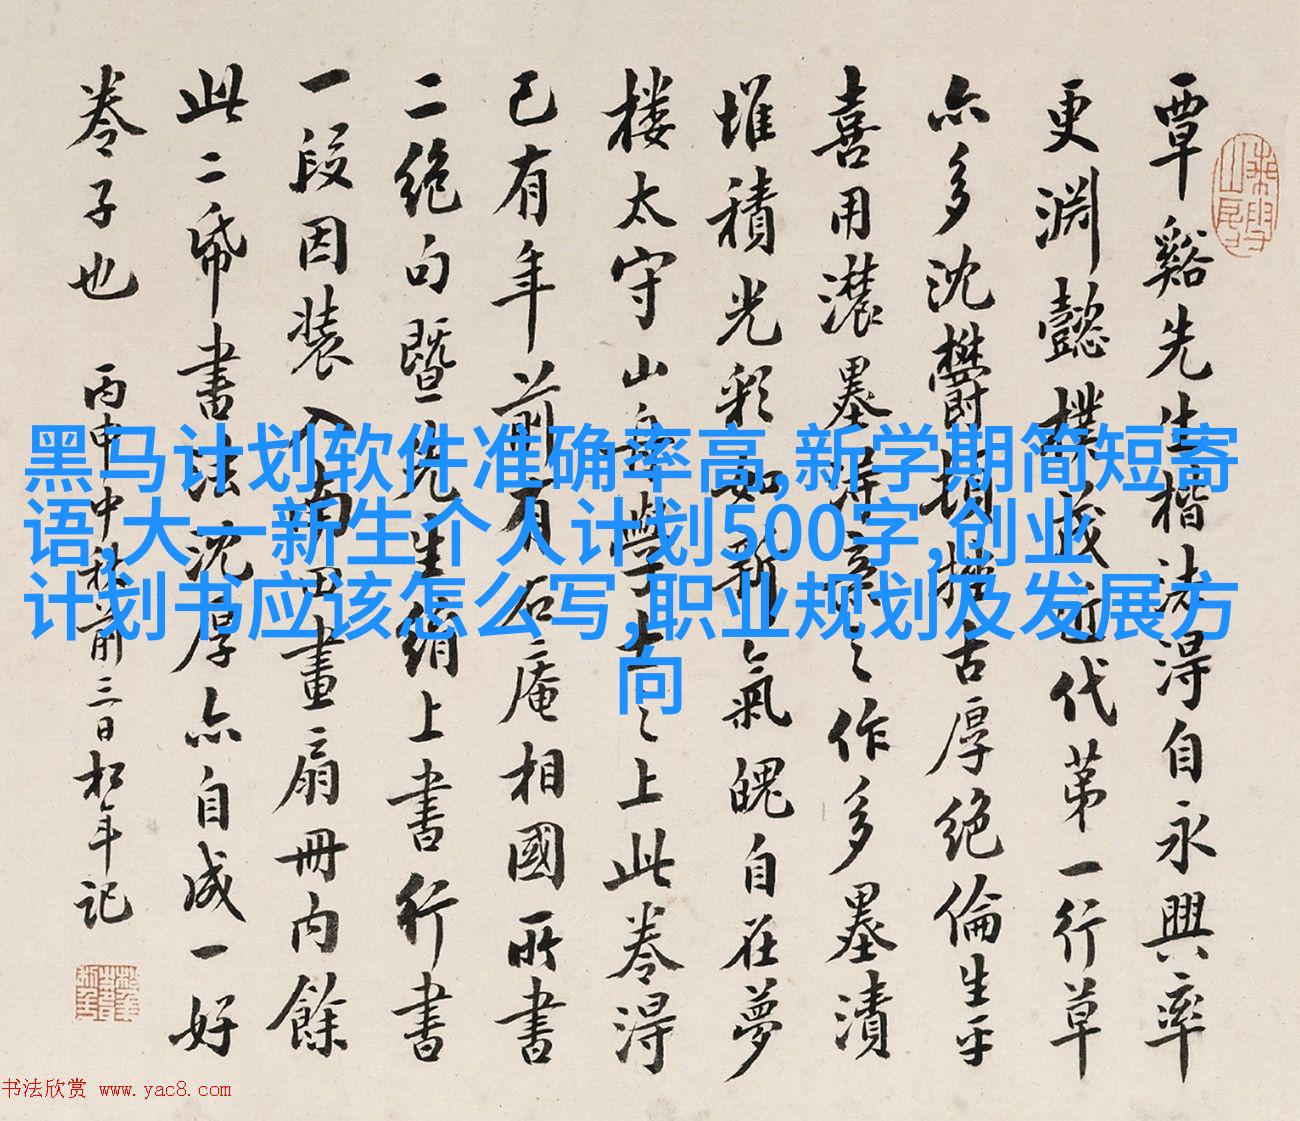 覃谿先生楷法得自永興率
更淵懿樸茂近代第一行草
亦多沈欝頓挫古厚絕倫生平
喜用濃墨得意之作多墨漬
堆積光彩如新氣魄自在夢
楼太守山舟學士之上此卷得
已有年前有石庵相國所書
二絕句暨先生絹上書行書
一段因裝入南田畫扇冊内餘
此二帋書法沈厚亦自成一好
卷子也 丙申中秋前三日松年記
黑马计划软件准确率高,新学期简短寄
语,大一新生个人计划500字,创业
计划书应该怎么写,职业规划及发展方
向
书法欣赏 www.yac8.com